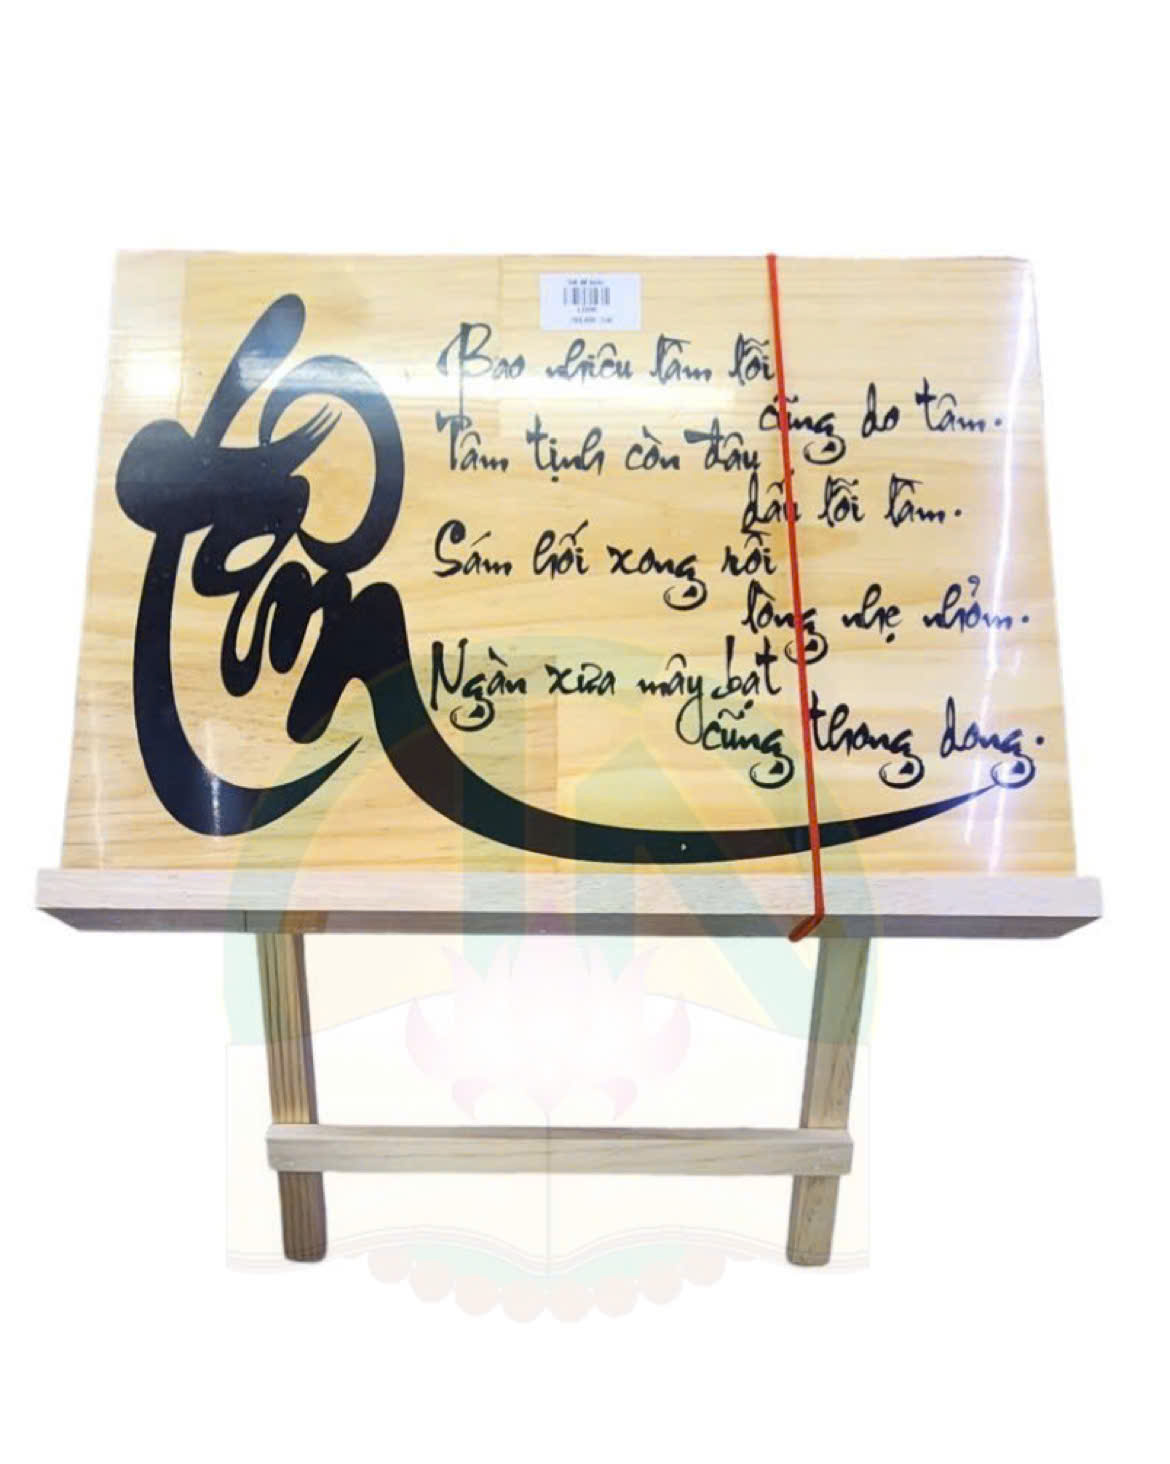 Tâm
Bao nhiêu lầm lỗi
cũng do tâm.
Tâm tịnh còn đâu
dấu lỗi lầm.
Sám hối xong rồi
lòng nhẹ nhõm.
Ngàn xưa mây bạt
cũng thong dong.